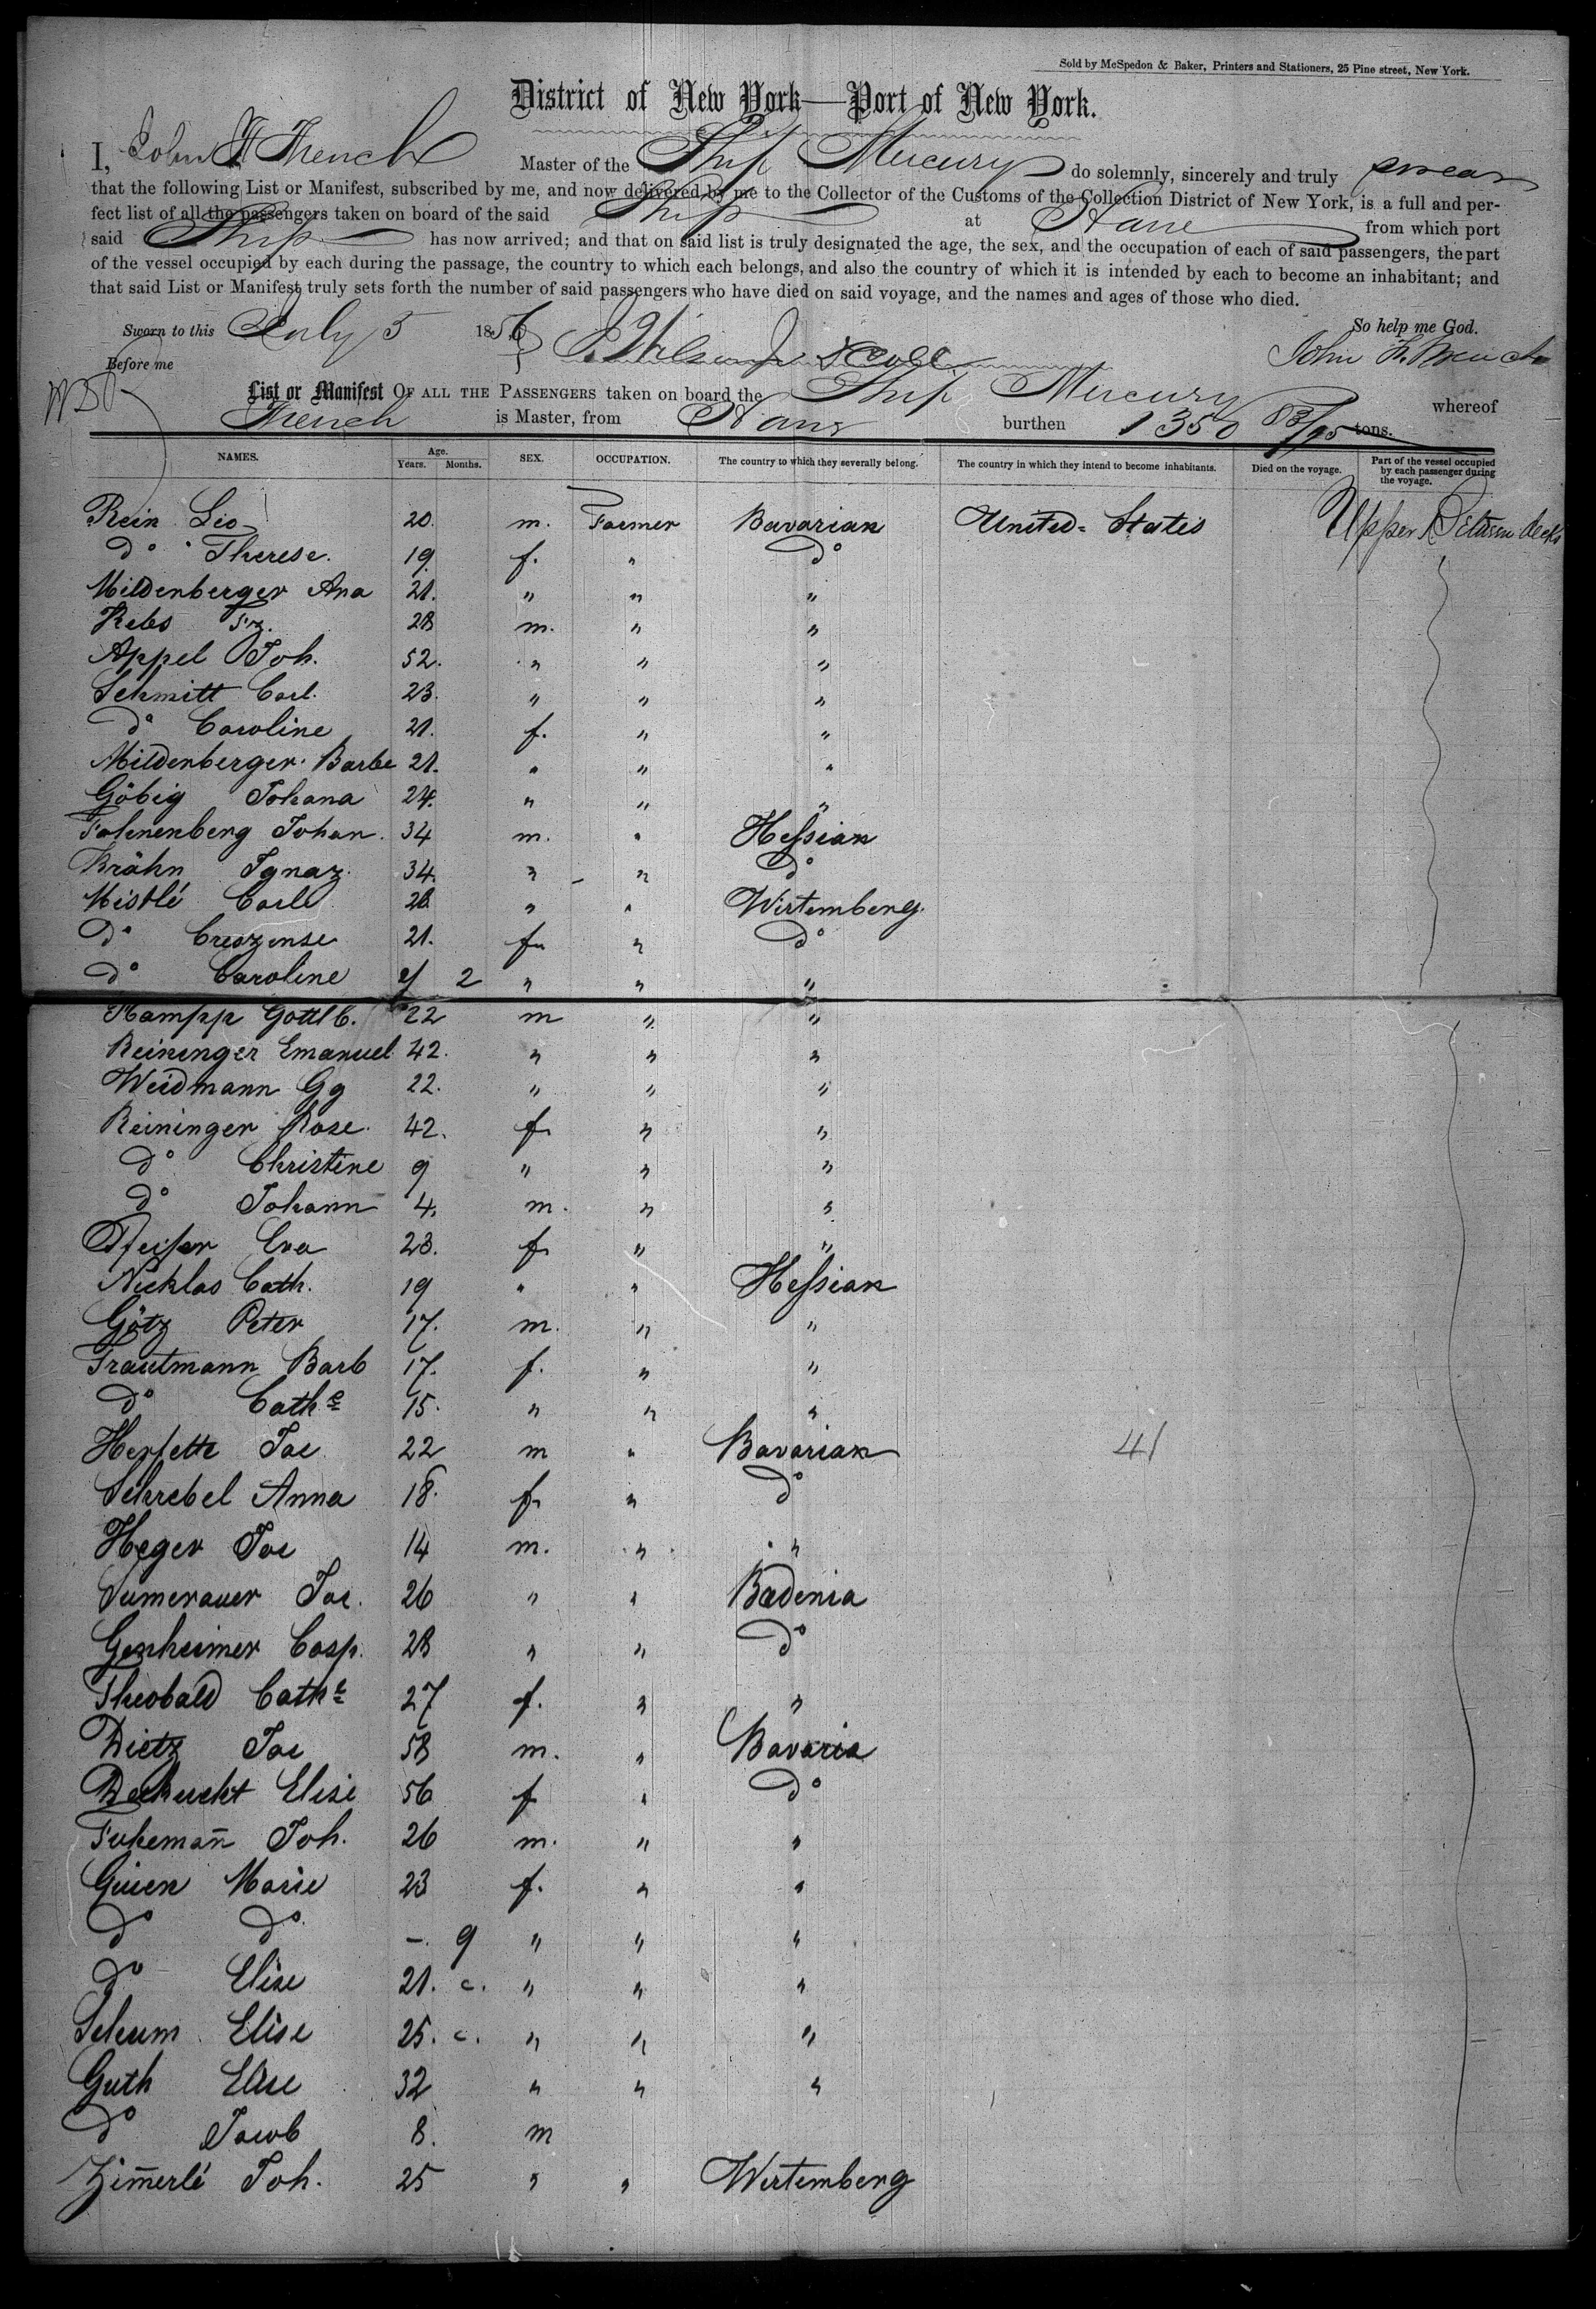 Sold by McSpedon & Baker, Printers and Stationers, 25 Pine street, New York.
District of New York—Port of New York.
I, John H French Master of the Ship Mercury do solemnly, sincerely and truly swear
that the following List or Manifest, subscribed by me, and now delivered by me to the Collector of the Customs of the Collection District of New York, is a full and per-
fect list of all the passengers taken on board of the said Ship at Havre from which port
said Ship has now arrived; and that on said list is truly designated the age, the sex, and the occupation of each of said passengers, the part
of the vessel occupied by each during the passage, the country to which each belongs, and also the country of which it is intended by each to become an inhabitant; and
that said List or Manifest truly sets forth the number of said passengers who have died on said voyage, and the names and ages of those who died.
Sworn to this July 5 1856 So help me God.
Before me John H. French
List or Manifest OF ALL THE PASSENGERS taken on board the Ship Mercury whereof
French is Master, from Havre burthen 1350 83/95 tons.
NAMES. Age. Years. Months. SEX. OCCUPATION. The country to which they severally belong. The country in which they intend to become inhabitants. Died on the voyage. Part of the vessel occupied by each passenger during the voyage.
Rein Leo 20. m. Farmer Bavarian United-States Upper Between decks
do " Therese. 19. f. " do
Mildenberger Ana 21. " " "
Krebs Fz. 28 m. " "
Appel Joh. 52. " " "
Schmitt Carl. 23. " " "
do Caroline 21. f. " "
Mildenberger Barbe 21. " " "
Göbig Johana 24. " " "
Fahnenberg Johan. 34 m. " Hessian
Krähn Ignaz 34. " " do
Mistlé Carl 28 " " Wirtemberg.
do Creszense 21. f. " do
do Caroline 2 " " "
Kampp Gottlb. 22 m " "
Reininger Emanuel 42. " " "
Weidmann Gg 22. " " "
Reininger Rose 42. f. " "
do Christine 9 " " "
do Johann 4. m. " "
Pfeifer Eva 23. f. " "
Nicklas Cath. 19 " " Hessian
Götz Peter 17. m. " "
Trautmann Barb 17. f. " "
do Cathe 15. " " "
Jac 22 m " Bavarian 41
Schrebel Anna 18. f. " do
Heger Jac 14 m. " "
Sumerauer Jac. 26 " " Badenia
Genheimer Casp. 28 " " do
Theobald Cathe 27 f. " "
Dietz Jac 58 m. " Bavaria
Elise 56 f " do
Fukemañ Joh. 26 m. " "
Marie 23 f. " "
do do -. 9 " " "
do Elise 21. c. " " "
Schum Elise 25. c. " " "
Guth Elise 32 " " "
do Jacob 8. m
Zim̄erlé Joh. 25 " " Wirtemberg